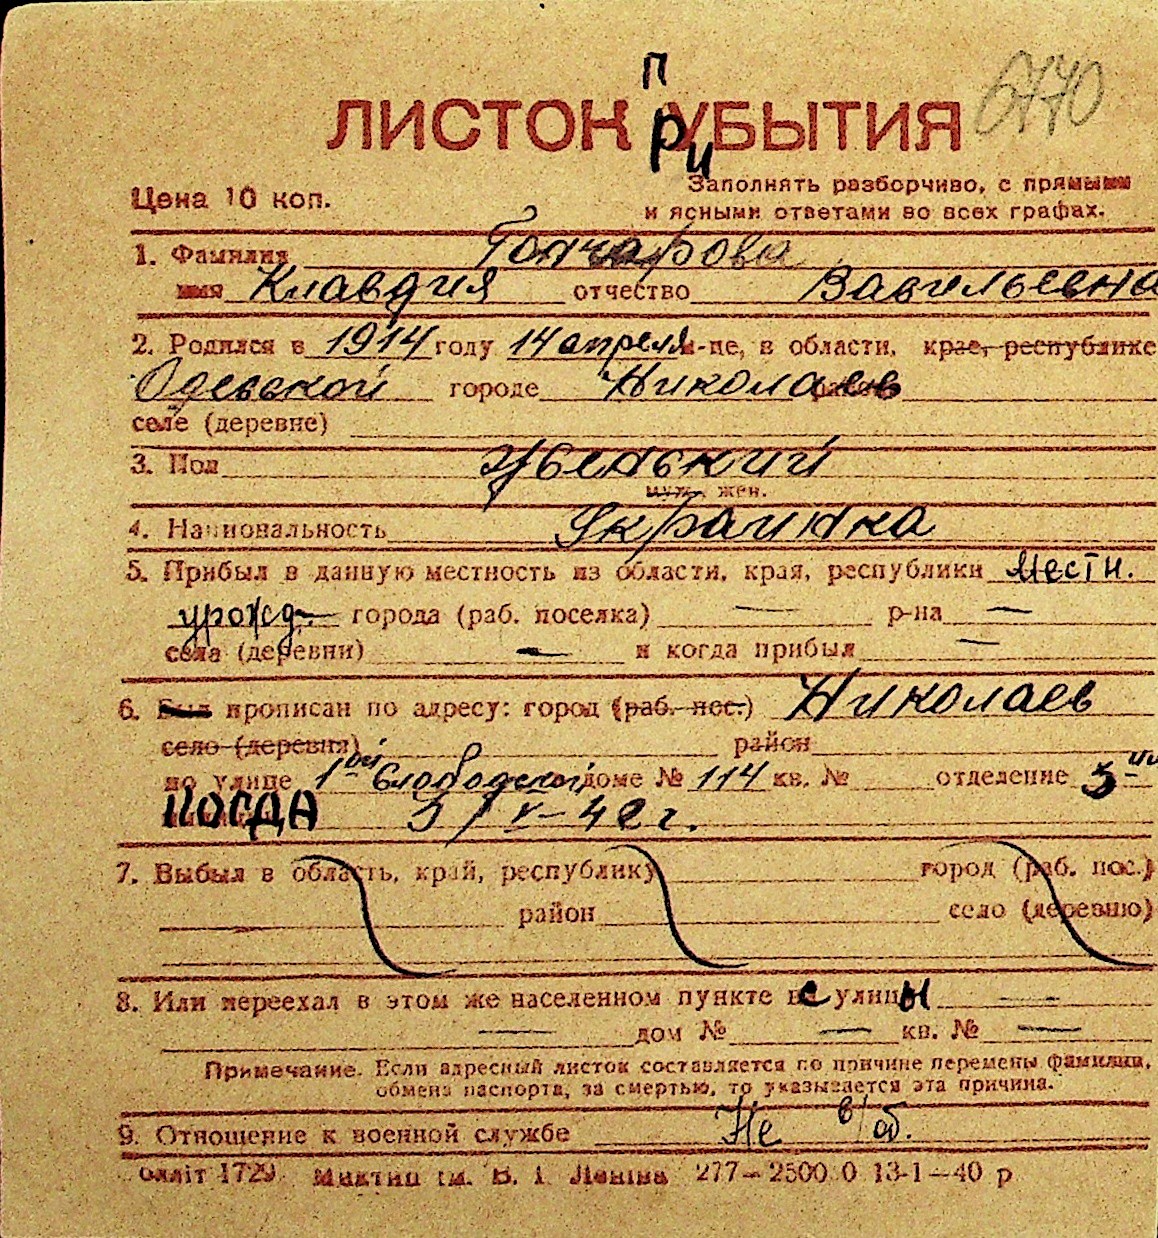 6770
ЛИСТОК ПРИБЫТИЯ
Заполнять разборчиво, с прямыми
Цена 10 коп.
и ясными ответами во всех графах.
1. Фамилия Гончарова
имя Клавдия отчество Васильевна
2. Родился в 1914 году 14 апреля м-це, в области, крае, республике
Одесской городе Николаев
селе (деревне)
3. Пол женский
муж., жен.
4. Национальность Украинка
5. Прибыл в данную местность из области, края, республики Местн.
урожд. города (раб. поселка) — р-на —
села (деревни) — и когда прибыл —
6. Был прописан по адресу: город (раб. пос.) Николаев
село (деревня) район
по улице 1ой Слободской доме № 114 кв. № отделение 3-
КОГДА
7. Выбыл в область, край, республику город (раб. пос.)
район село (деревню)
8. Или переехал в этом же населенном пункте с улицы —
— дом № — кв. № —
Примечание. Если адресный листок составляется по причине перемены фамилии,
обмена паспорта, за смертью, то указывается эта причина.
9. Отношение к военной службе Не в/об.
олліт 1729 Миктип ім. В. І. Леніна 277–2500 0 13-1–40 р